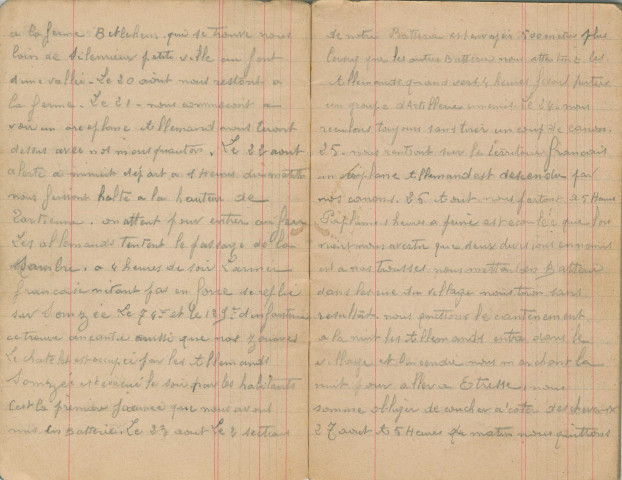 a la ferme Betlehem qui se trouve nous
loin de Silenrieux petite ville au font
d'une vallée. Le 20 août nous restont a
la ferme. Le 21 - nous commensont a
voir un areoplane Allemand nous tiront
dessus avec nos mousquetons. Le 22 aout
alerte a minuit départ a 1 Heures du matin
nous fesions halte a la hauteur de
Tarcienne. on attent pour entrer au feu
Les allemands tentent le passage de la
Sambre. a 4 heures de soir l'armee
francaise n'etant pas en force se replie
sur Somzée Le 74e et le 123e d'infanterie
se trouve en contre aussi que nos zouaves
Le Chatelet est occupé par les Allemands
Somzée est évacué le soir par les habitants
C'est la premiere journée que nous avont
mis en Batterie. Le 23 aout Le 2 sections
de notre Batterie est envoyée 500 metres plus
loin que les autres Batterie nous attentont les
Allemands quand vers 4 heures
un groupe d'Artillerie ennemi Le 24 nous
reculons toujours sans tirer un coup de canon.
25 - nous rentront sur la Territoire français
un Airplane Allemand est descendu par
nos canons. 26 Aout nous partont a 5 Heures
heures a peine que l'on
vient nous avertir que deux divisions ennemies
est a nos trousses nous mettons en Batterie
dans les rue du village nous tiron sans
resultat nous quittons le cantonement
a la nuit les Allemands entre dans le
village et l'incendie nous marchont la
nuit pour aller a Etresse nous
somme obliger de coucher a coter des chevaux
27 aout A 5 Heures du matin nous quittons